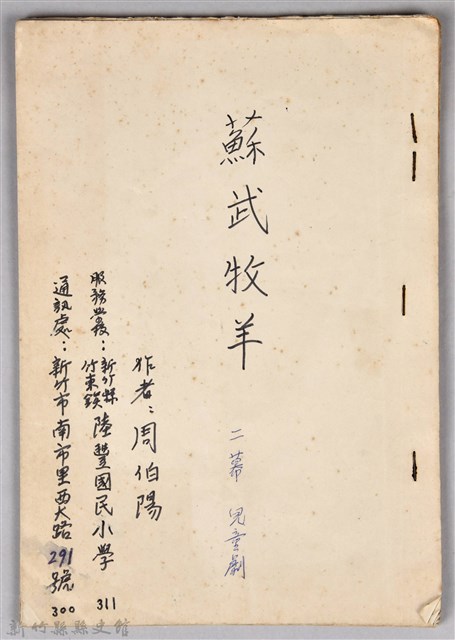 蘇武牧羊
二幕 兒童劇
作者:周伯陽
服務學校:新竹縣竹東鎮陸豐國民小學 311
通訊處:新竹市南市里西大路291號 300
新竹縣縣史館